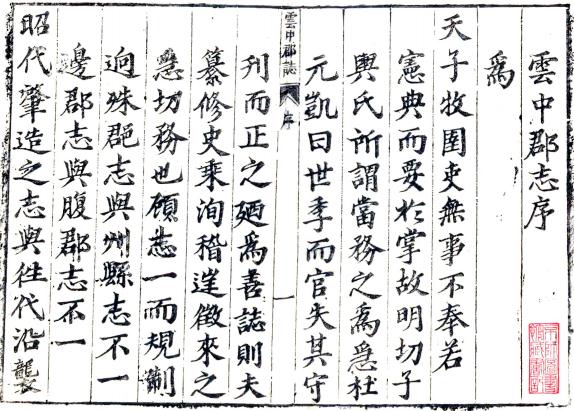 雲中郡志序
爲
天子牧圉吏無事不奉若
憲典而要於掌故明切子
輿氏所謂當務之爲急杜
元凱曰世季而官失其守
雲中郡誌
序
一
刋而正之廼爲善誌則夫
纂修史乘洵稽徵來之
急切務也顧志一而規制
逈殊郡志與州縣志不一
邊郡志與腹郡志不一
昭代肇造之志與往代沿襲